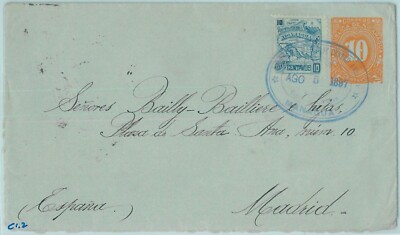 10
CENTAVOS 10
10
AGO 5 1897
Señores Bailly-Bailliere e hijos,
Plaza de Santa Ana, núm 10
(España)
Madrid
C1.2